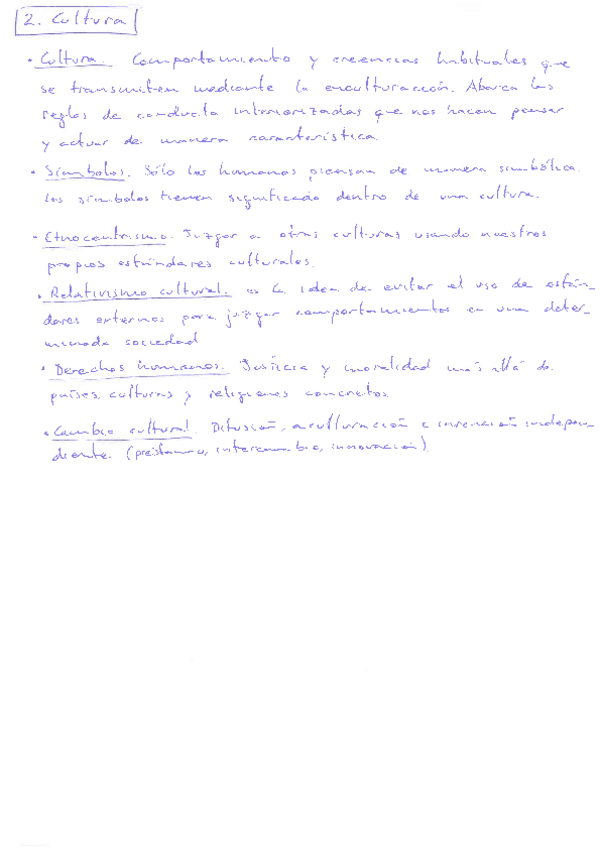 2. Cultura
• Cultura. Comportamiento y creencias habituales que
se transmiten mediante la enculturación. Abarca las
reglas de conducta interiorizadas que nos hacen pensar
y actuar de manera característica.
• Símbolos. Sólo los humanos piensan de manera simbólica.
Los símbolos tienen significado dentro de una cultura.
• Etnocentrismo. Juzgar a otras culturas usando nuestros
propios estándares culturales.
• Relativismo cultural. es la idea de evitar el uso de están-
dares externos para juzgar comportamientos en una deter-
minada sociedad
• Derechos humanos. Justicia y moralidad más allá de
países, culturas y religiones concretos.
• Cambio cultural. Difusión, aculturación e invención indepen-
diente. (préstamo, intercambio, innovación)